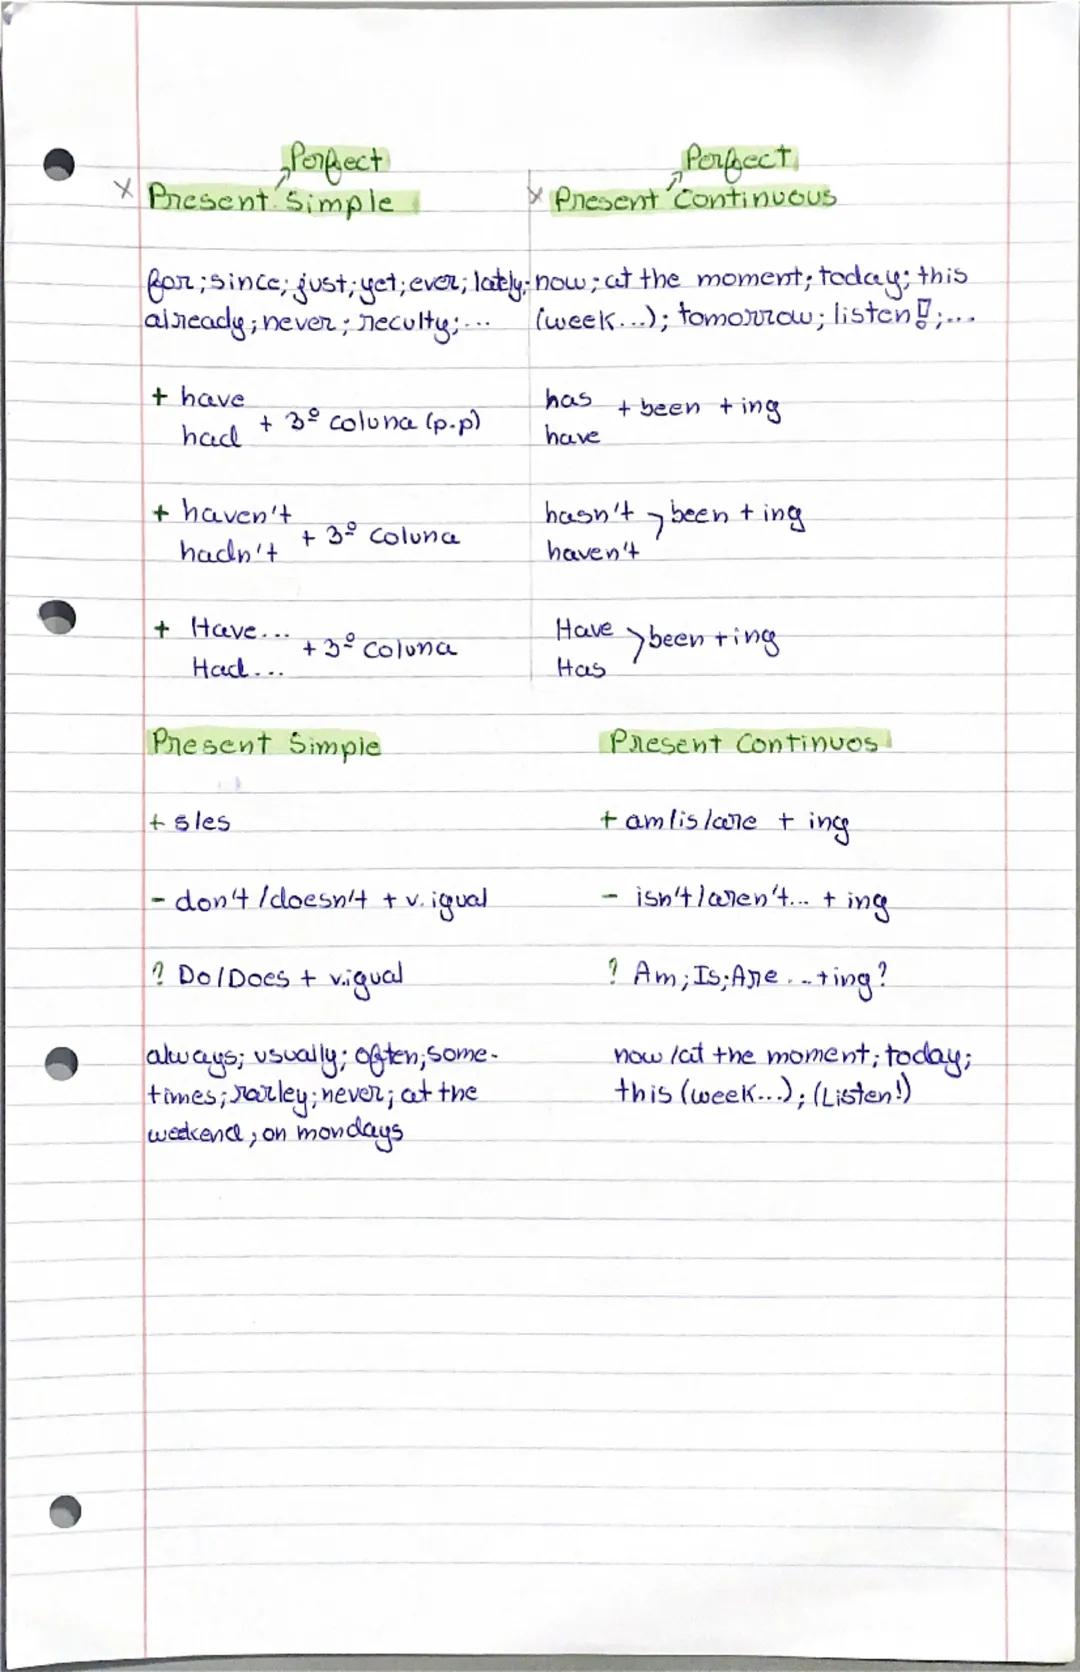 Perfect
Present Simple
Perfect
Present Continuous
for; since; just; yet; ever; lately;
already; never; reculty; ...
now; at the moment; today; this
(week...); tomorrow; listen!; ...
+ have
had + 3º coluna (p.p)
+ haven't
hadn't + 3º coluna
+ Have...
Had... + 3º coluna
has
have + been + ing
hasn't
haven't been + ing
Have
Has been + ing
Present Simple
+ s/es
- don't/doesn't + v. igual
? Do/Does + v.igual
always; usually; often; some-
times; rarley; never; at the
weekend; on mondays
Present Continuos
+ am/is/are + ing
- isn't/aren't... + ing
? Am; Is; Are... + ing?
now/at the moment; today;
this (week...); (Listen!)